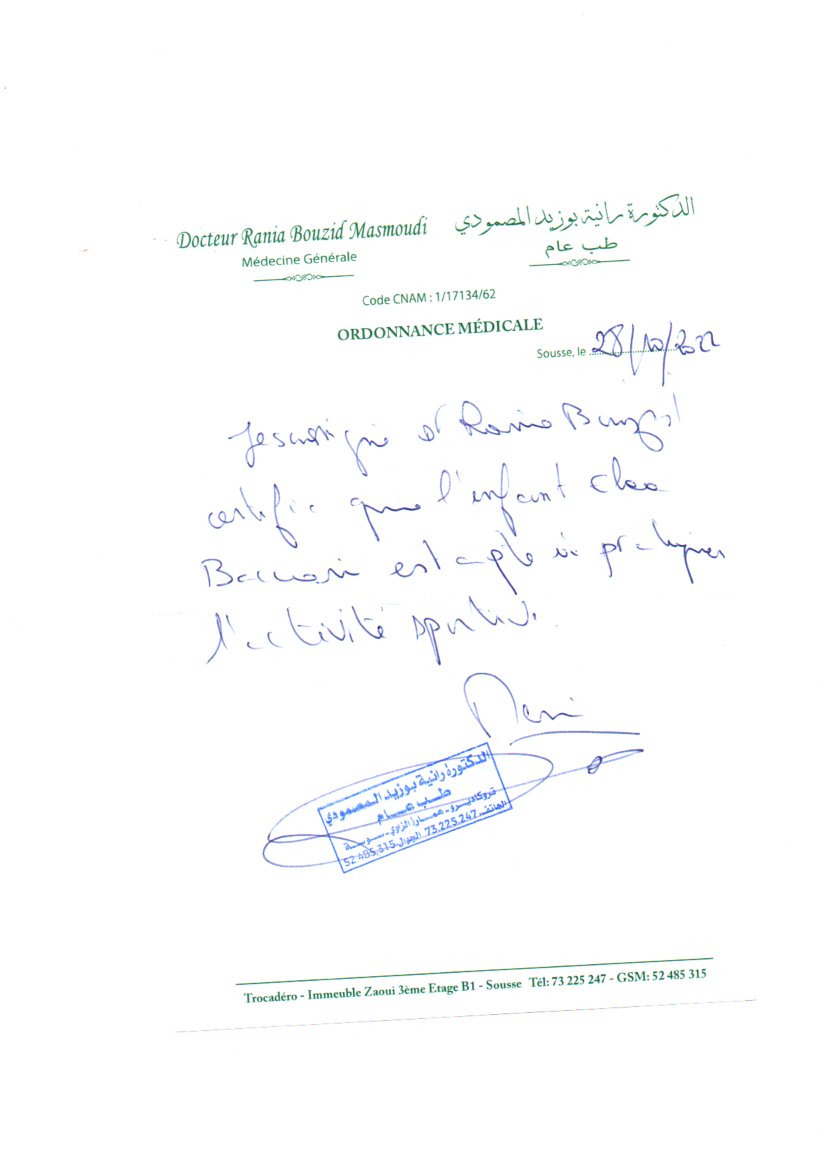 Docteur Rania Bouzid Masmoudi
الدكتورة رانية بوزيد المصمودي
Médecine Générale
طب عام
Code CNAM : 1/17134/62
ORDONNANCE MÉDICALE
Sousse, le 28/10/2022
Je soussigné Dr Rania Bouzid
certifie que l'enfant
est apte à pratiquer
l'activité sportive.
الدكتورة رانية بوزيد المصمودي
طب عام
تروكاديرو - عمارة الزاوي - سوسة
الهاتف: 73.225.247 الجوال: 52.485.315
Trocadéro - Immeuble Zaoui 3ème Etage B1 - Sousse Tél: 73 225 247 - GSM: 52 485 315